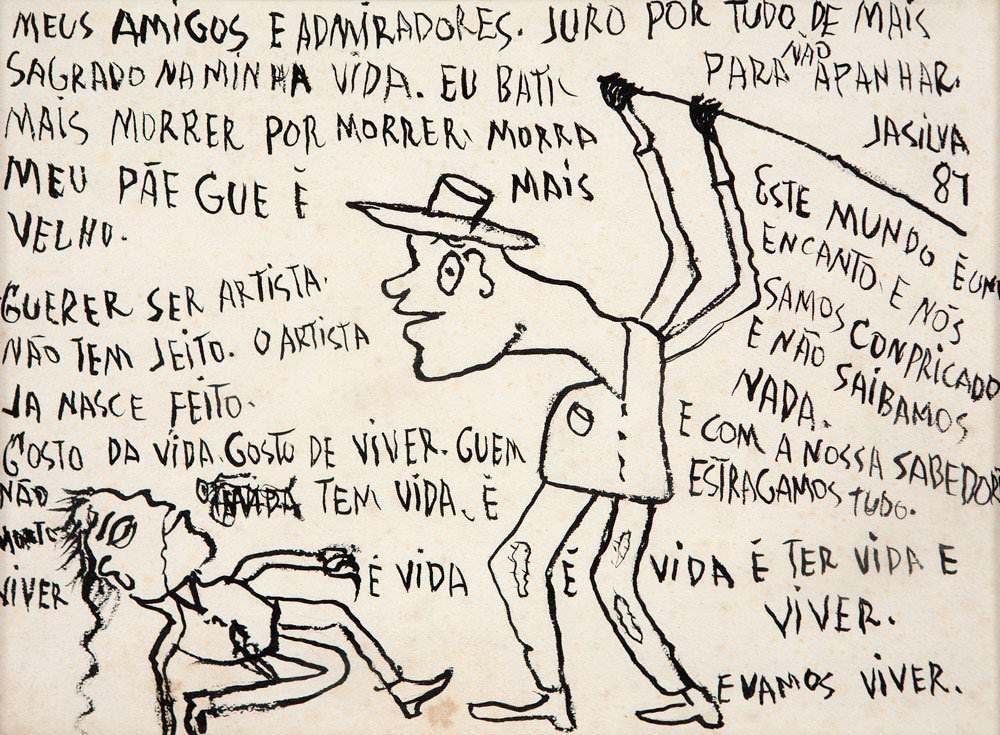 MEUS AMIGOS E ADMIRADORES. JURO POR TUDO DE MAIS
SAGRADO NA MINHA VIDA. EU BATI
PARA NÃO APANHAR.
MAIS MORRER POR MORRER. MORRA
MAIS
MEU PÃE GUE É
VELHO.
JASILVA
87
GUERER SER ARTISTA.
NÃO TEM JEITO. O ARTISTA
JA NASCE FEITO.
GOSTO DA VIDA. GOSTO DE VIVER. GUEM
NÃO TEM VIDA. É
MORTO
VIVER
É VIDA É VIDA É TER VIDA E
VIVER.
E VAMOS VIVER.
ESTE MUNDO É UM
ENCANTO. E NÓS
SAMOS CONPRICADO
E NÃO SAIBAMOS
NADA.
E COM A NOSSA SABEDOR
ESTRAGAMOS TUDO.